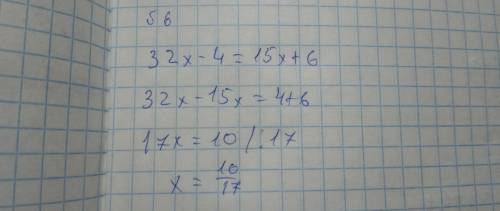 56
32x-4=15x+6
32x-15x=4+6
17x=10 /:17
x=10/17